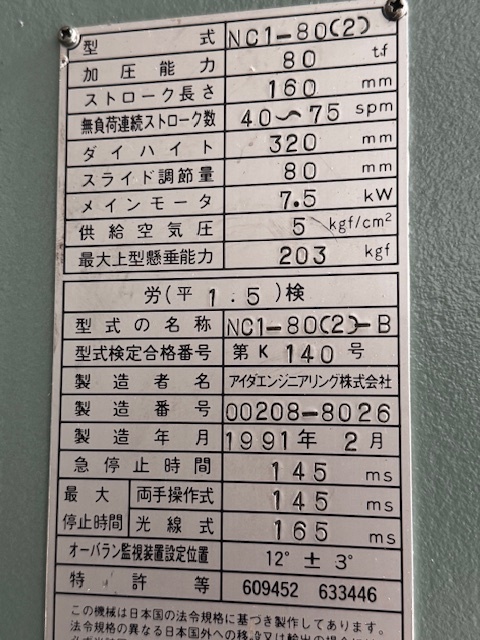 型式 NC1-80(2)
加圧能力 80 tf
ストローク長さ 160 mm
無負荷連続ストローク数 40〜75 spm
ダイハイト 320 mm
スライド調節量 80 mm
メインモータ 7.5 kW
供給空気圧 5 kgf/cm²
最大上型懸垂能力 203 kgf
労(平 1.5)検
型式の名称 NC1-80(2)-B
型式検定合格番号 第K 140号
製造者名 アイダエンジニアリング株式会社
製造番号 00208-8026
製造年月 1991年 2月
急停止時間 145 ms
最大停止時間 両手操作式 145 ms
光線式 165 ms
オーバラン監視装置設定位置 12° ± 3°
特許等 609452 633446
この機械は日本国の法令規格に基づき製作してあります。
法令規格の異なる日本国外への移